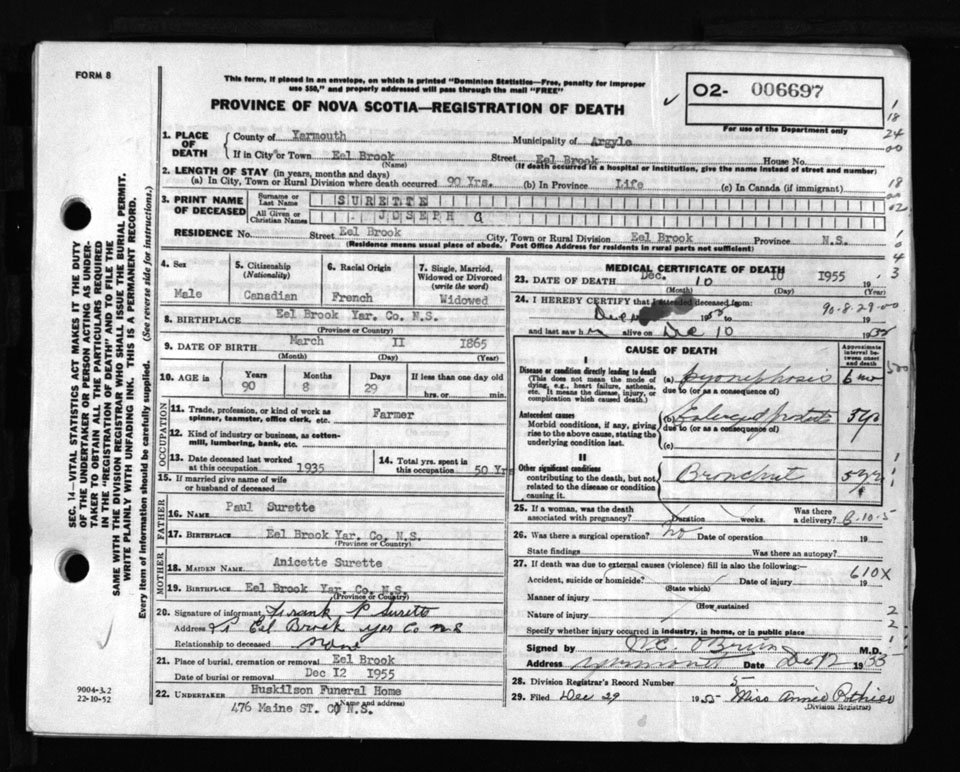 FORM 8
This form, if placed in an envelope, on which is printed "Dominion Statistics—Free, penalty for improper
use $50," and properly addressed will pass through the mail "FREE"
PROVINCE OF NOVA SCOTIA—REGISTRATION OF DEATH
O2- 006697
For use of the Department only
1. PLACE OF DEATH
County of Yarmouth Municipality of Argyle
If in City or Town Eel Brook Street Eel Brook House No.
(Name) (If death occurred in a hospital or institution, give the name instead of street and number)
2. LENGTH OF STAY (in years, months and days)
(a) In City, Town or Rural Division where death occurred 90 Yrs. (b) In Province Life (c) In Canada (if immigrant)
3. PRINT NAME OF DECEASED
Surname or Last Name SURETTE
All Given or Christian Names JOSEPH a
RESIDENCE No. Street Eel Brook City, Town or Rural Division Eel Brook Province N.S.
(Residence means usual place of abode. Post Office Address for residents in rural parts not sufficient)
4. Sex
Male
5. Citizenship (Nationality)
Canadian
6. Racial Origin
French
7. Single, Married, Widowed or Divorced (write the word)
Widowed
8. BIRTHPLACE Eel Brook Yar. Co. N.S.
(Province or Country)
9. DATE OF BIRTH March 11 1865
(Month) (Day) (Year)
10. AGE in Years Months Days If less than one day old
90 8 29 hrs. or min.
OCCUPATION
11. Trade, profession, or kind of work as
spinner, teamster, office clerk, etc. Farmer
12. Kind of industry or business, as cotton-
mill, lumbering, bank, etc.
13. Date deceased last worked
at this occupation 1935
14. Total yrs. spent in
this occupation 50 Yrs
15. If married give name of wife
or husband of deceased
FATHER
16. NAME Paul Surette
17. BIRTHPLACE Eel Brook Yar. Co. N.S.
(Province or Country)
MOTHER
18. MAIDEN NAME Anicette Surette
19. BIRTHPLACE Eel Brook Yar. Co. N.S.
(Province or Country)
20. Signature of informant Frank P Surette
Address Eel Brook Yar Co N S
Relationship to deceased None
21. Place of burial, cremation or removal Eel Brook
Date of burial or removal Dec 12 1955
22. UNDERTAKER Huskilson Funeral Home
(Name and address)
476 Maine ST. CO N.S.
MEDICAL CERTIFICATE OF DEATH
23. DATE OF DEATH Dec. 10 10 1955 19
(Month) (Day) (Year)
24. I HEREBY CERTIFY that I attended deceased from:
90-8-29-00
to 19
and last saw h m alive on Dec 10 19
CAUSE OF DEATH
Approximate interval between onset and death
I
Disease or condition directly leading to death
(This does not mean the mode of
dying, e.g., heart failure, asthenia,
etc. It means the disease, injury, or
complication which caused death.)
(a) Pyonephrosis 6 mo
due to (or as a consequence of)
Antecedent causes
Morbid conditions, if any, giving
rise to the above cause, stating the
underlying condition last.
(b) Enlarged prostate
due to (or as a consequence of)
(c)
II
Other significant conditions
contributing to the death, but not
related to the disease or condition
causing it.
25. If a woman, was the death
associated with pregnancy? Duration weeks. Was there
a delivery?
26. Was there a surgical operation? no Date of operation 19
State findings Was there an autopsy?
27. If death was due to external causes (violence) fill in also the following:—
610X
Accident, suicide or homicide? Date of injury 19
(State which)
Manner of injury
(How sustained
Nature of injury
Specify whether injury occurred in industry, in home, or in public place
Signed by O'Brien M.D.
Address Yarmouth Date Dec 12 19
28. Division Registrar's Record Number 5
29. Filed Dec 29 1955 Miss Annie Pothier
(Division Registrar)
SEC. 14—VITAL STATISTICS ACT MAKES IT THE DUTY
OF THE UNDERTAKER OR PERSON ACTING AS UNDER-
TAKER TO OBTAIN ALL THE PARTICULARS REQUIRED
IN THE "REGISTRATION OF DEATH" AND TO FILE THE
SAME WITH THE DIVISION REGISTRAR WHO SHALL ISSUE THE BURIAL PERMIT.
WRITE PLAINLY WITH UNFADING INK. THIS IS A PERMANENT RECORD.
Every item of information should be carefully supplied. (See reverse side for instructions.)
9004-3.2
22-10-52